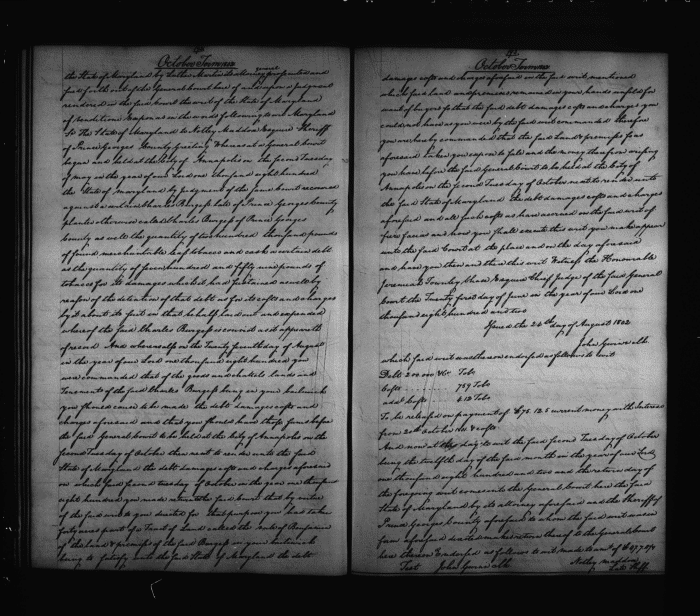 October Term 1802
the State of Maryland by Luther Martin its Attorney General prosecuted and
sued forth out of the General Court here of and upon a Judgment
rendered in the said Court the writ of the State of Maryland
of venditioni exponas in the words following to wit Maryland
To The State of Maryland to Notley Maddox Esquire Sheriff
of Prince Georges County Greeting Whereas at a General Court
begun and held at the City of Annapolis on the second Tuesday
of May in the year of our Lord one thousand eight hundred
the State of Maryland by judgment of the same Court recovered
against a certain Charles Burgess late of Prince Georges County
planter otherwise called Charles Burgess of Prince Georges
County as well the quantity of two hundred thousand pounds
of sound merchantable leaf tobacco and cask a certain debt
as the quantity of seven hundred and fifty nine pounds of
tobacco for its damages which it had sustained as well by
reason of the detention of that debt as for its costs and charges
by it about its suit in that behalf laid out and expended
whereof the said Charles Burgess is convict as it appears
of record And whereas also on the Twenty fourth day of August
in the year of our Lord one thousand eight hundred you
were commanded that of the goods and chattels lands and
Tenements of the said Charles Burgess being in your bailiwick
you should cause to be made the debt damages costs and
charges aforesaid and that you should have those sums before
the said General Court to be held at the City of Annapolis on the
second Tuesday of October then next to render unto the said
State of Maryland the debt damages costs and charges aforesaid
on which said second tuesday of October in the year one thousand
eight hundred you made return to the said Court that by virtue
of the said writ to you directed for that purpose you had taken
forty acres part of a Tract of Land called the
of the land & premises of the said Burgess in your bailiwick
being to satisfy unto the said State of Maryland the debt
October Term 1802
damages costs and charges aforesaid in the said writ mentioned
which said land and premises remained in your hands unsold for
want of buyers so that the said debt damages costs and charges you
could not have as you were by the said writ commanded Therefore
you are hereby commanded that the said Land & premises so as
aforesaid taken you expose to sale and the money therefrom arising
you have before the said General Court to be held at the City of
Annapolis on the second Tuesday of October next to render unto
the said State of Maryland the debt damages costs and charges
aforesaid and all such costs as have accrued on the said writ of
fieri facias and how you shall execute this writ you make appear
unto the said Court at the place and on the day aforesaid
and have you then and there this writ Witness the Honourable
Jeremiah Townley Chase Esquire Chief Judge of the said General
Court the Twenty first day of June in the year of our Lord one
thousand eight hundred and two
Issued the 24th day of August 1802
John Gwinn clk
which said writ was thereon endorsed as follows to wit
Debt 200.000 wt Tobo
Costs 759 Tobo
addl Costs 612 Tobo
To be released on payment of current money with Interest
from 20th October & costs
And now at this day to wit the said second Tuesday of October
being the twelfth day of the said month in the year of our Lord
one thousand eight hundred and two and the return day of
the foregoing writ comes into the General Court here the said
State of Maryland by its attorney aforesaid and the Sheriff of
Prince Georges County aforesaid to whom the said writ was in
form aforesaid directed makes return thereof to the General Court
here thereon Endorsed as follows to wit made
Test John Gwinn clk Notley Maddox
late Shff.